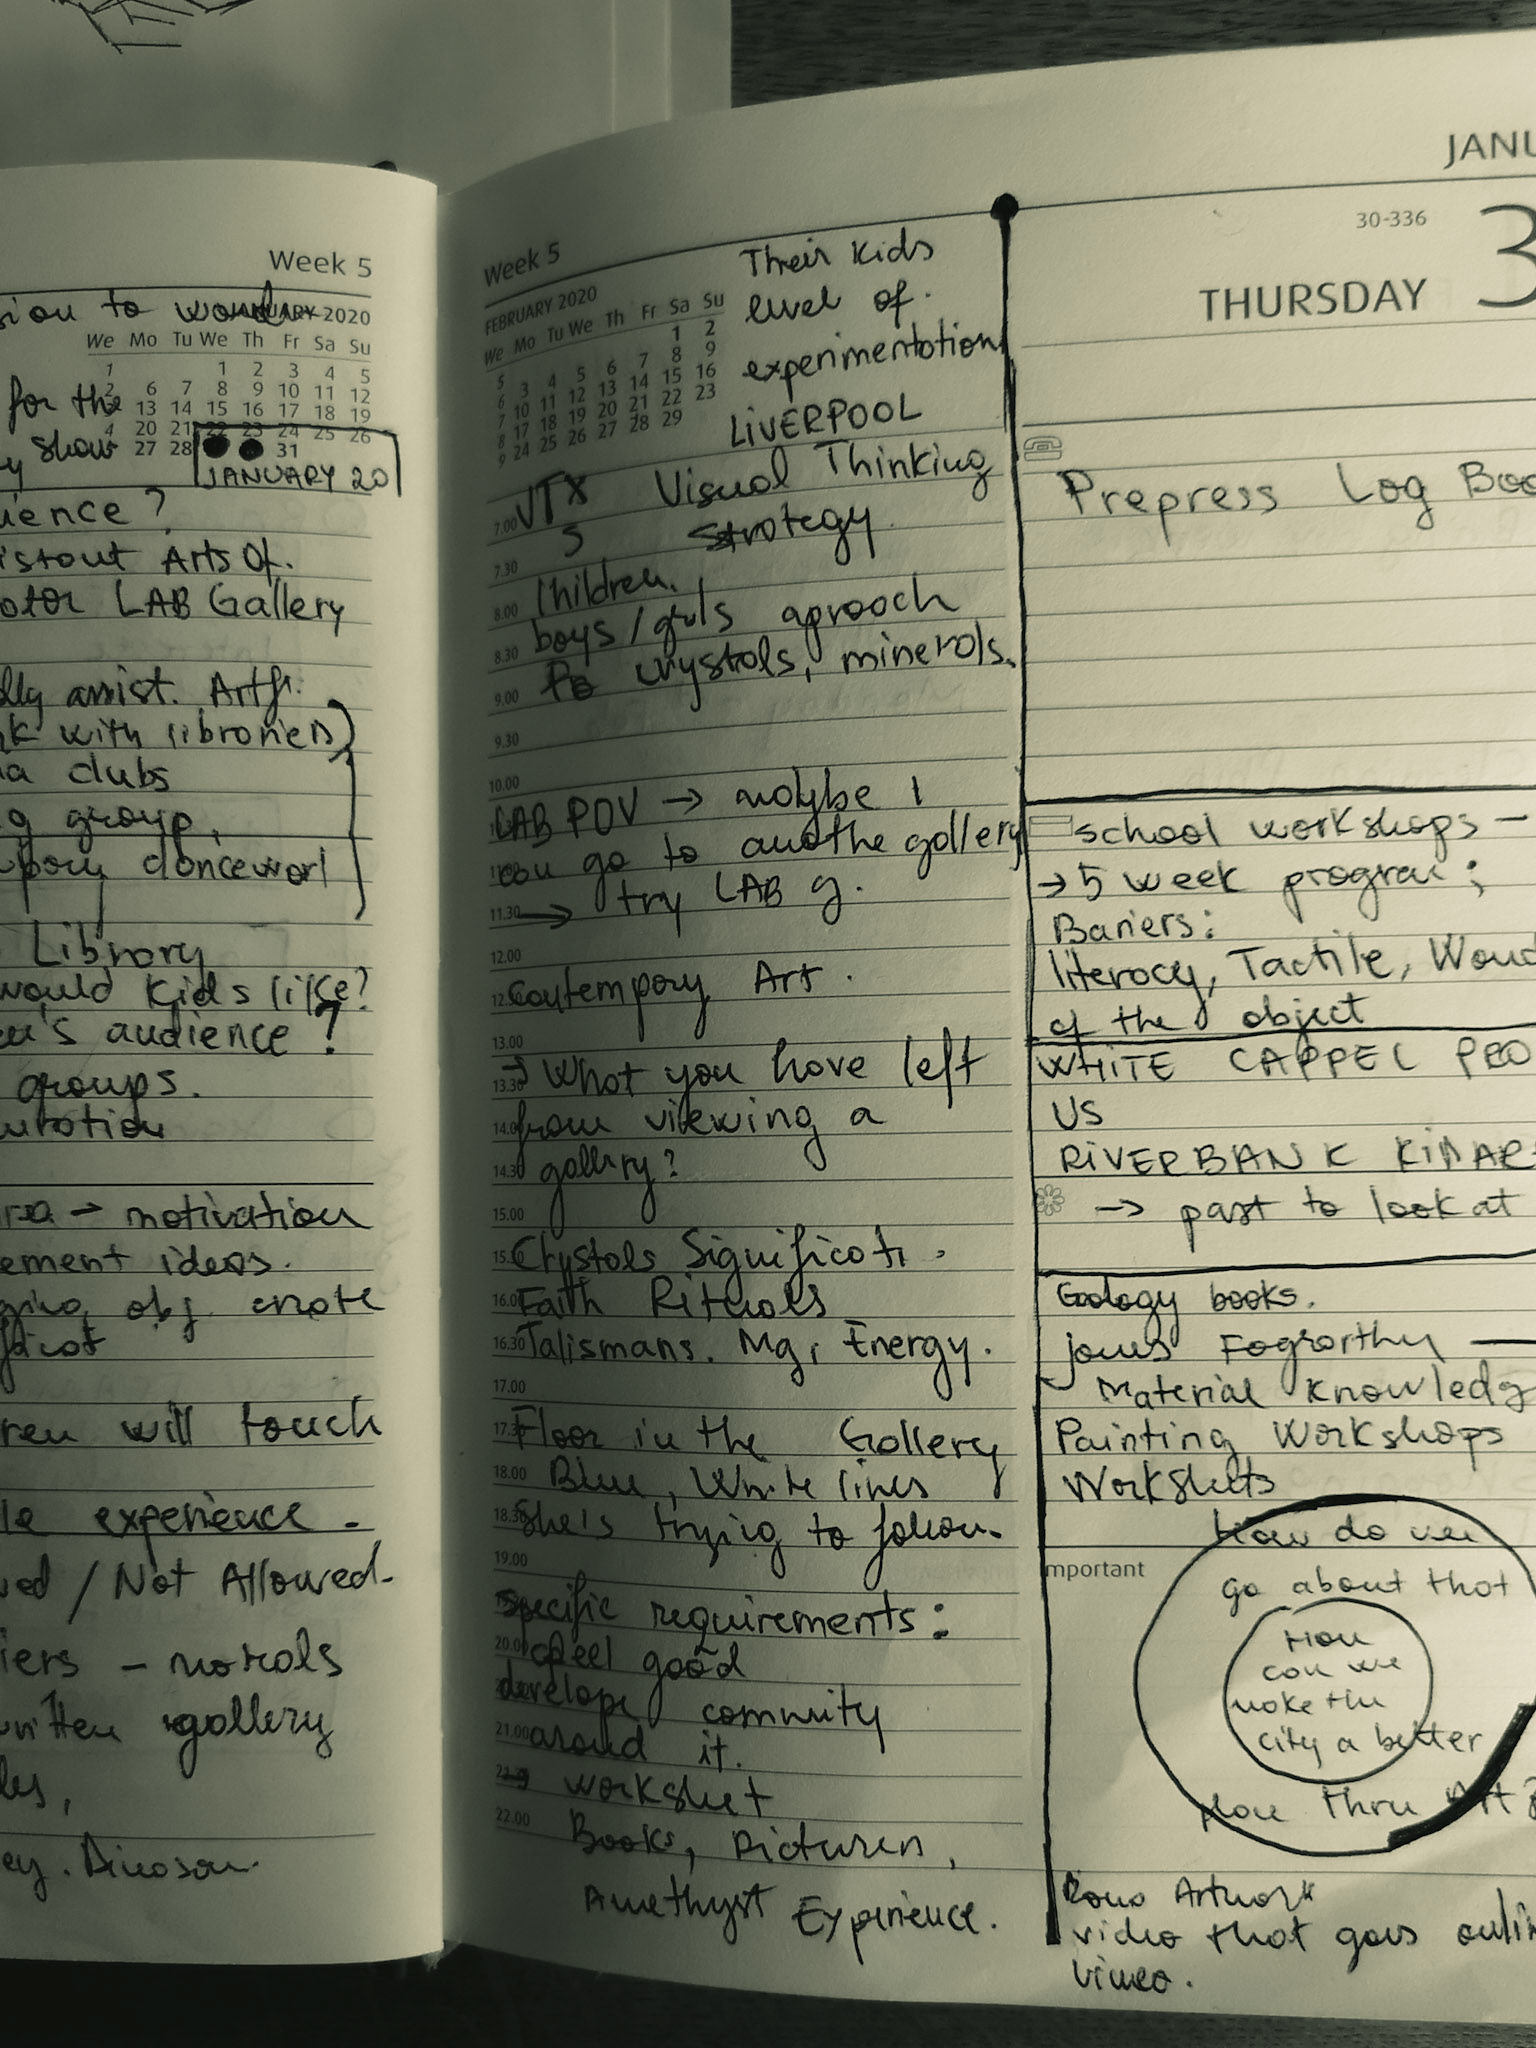 Week 5
sion to word
JANUARY 2020
We Mo Tu We Th Fr Sa Su
1 1 2 3 4 5
2 6 7 8 9 10 11 12
13 14 15 16 17 18 19
4 20 21 22 23 24 25 26
27 28 31
for the
show
JANUARY 20
ience?
Arts Of.
LAB Gallery
assist. Artf.
with libroriers)
clubs
g group,
donceworl
Library
would kids like?
audience?
groups.
→ motivation
ement ideas.
obj. crote
ren will touch
le experience -
ed / Not Allowed-
iers - noterols
written gollery
Week 5
FEBRUARY 2020
We Mo Tu We Th Fr Sa Su
5 1 2
6 3 4 5 6 7 8 9
7 10 11 12 13 14 15 16
8 17 18 19 20 21 22 23
9 24 25 26 27 28 29
Their kids
level of.
experimentation
LIVERPOOL
7.00 VTX Visual Thinking
S Strotegy.
7.30
8.00 Children.
8.30 boys / girls aprooch
9.00 crystols, minerols.
9.30
10.00
LAB POV → moybe I
cou go to anothe gollery
11.30 → try LAB g.
12.00
Contempory Art.
13.00
13.30 → What you hove left
14.00 from viewing a
14.30 gollery?
15.00
Crystols Significoti.
16.00 Faith Rituols
16.30 Talismans. Mg, Energy.
17.00
Floor in the Gollery
18.00 Blue, White lines
18.30 She's trying to follow.
19.00
Specific requirements:
20.00 feel good
develope commrity
21.00 around it.
→ worksheet
22.00 Books, Pictures,
Amethyst Experience.
JANU
30-336
THURSDAY 3
Prepress Log Boo
school workshops -
→ 5 week progrom;
Bariers:
literocy, Tactile, Woud
of the object
WHITE CAPPEL PRO
US
RIVERBANK KINAR
→ past to look at
Geology books.
Jones Fogrorthy —
Material Knowledg
Painting Workshops
Worksheets
How do we
Important
go about thot
How
cou we
moke the
city a better
thru Art?
Artwork
video thot goes onlin
vimeo.